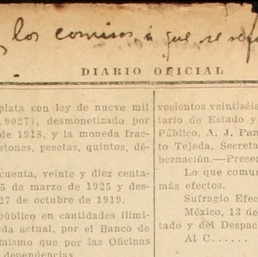 los comisos, a que se ref
DIARIO OFICIAL
plata con ley de nueve mil
.9027), desmonetizado por
de 1918, y la moneda frac-
stones, pesetas, quintos, dé-
cuenta, veinte y diez centa-
5 de marzo de 1925 y des-
27 de octubre de 1919.
público en cantidades ilimi-
eda actual, por el Banco de
mismo que por las Oficinas
dependencias
vecientos veintiséis
tario de Estado y
Público, A. J. Pan
to Tejeda, Secreta
bernación.—Presen
Lo que comu
más efectos.
Sufragio Efec
México, 13 de
tado y del Despac
Al C......